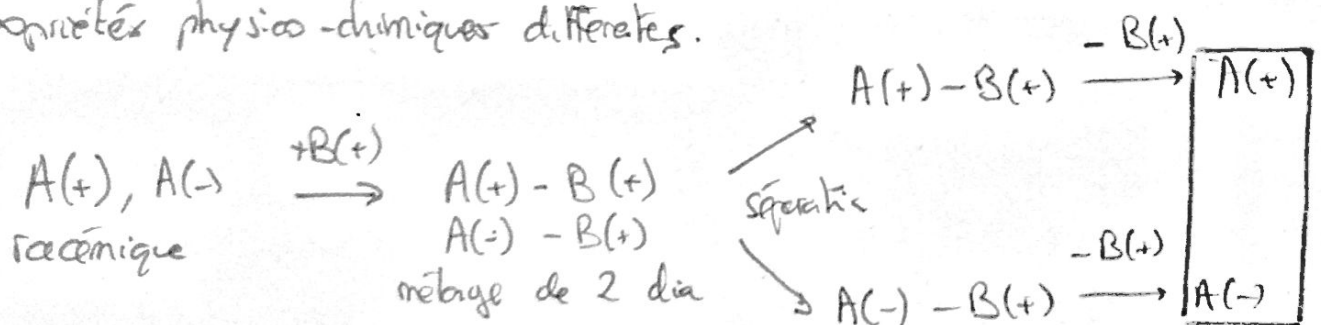 opriétés physico-chimiques différentes.
A(+), A(-)
racémique
+B(+)
A(+) - B(+)
A(-) - B(+)
mélange de 2 dia
séparatio
A(+) - B(+)
- B(+)
A(+)
A(-) - B(+)
- B(+)
A(-)